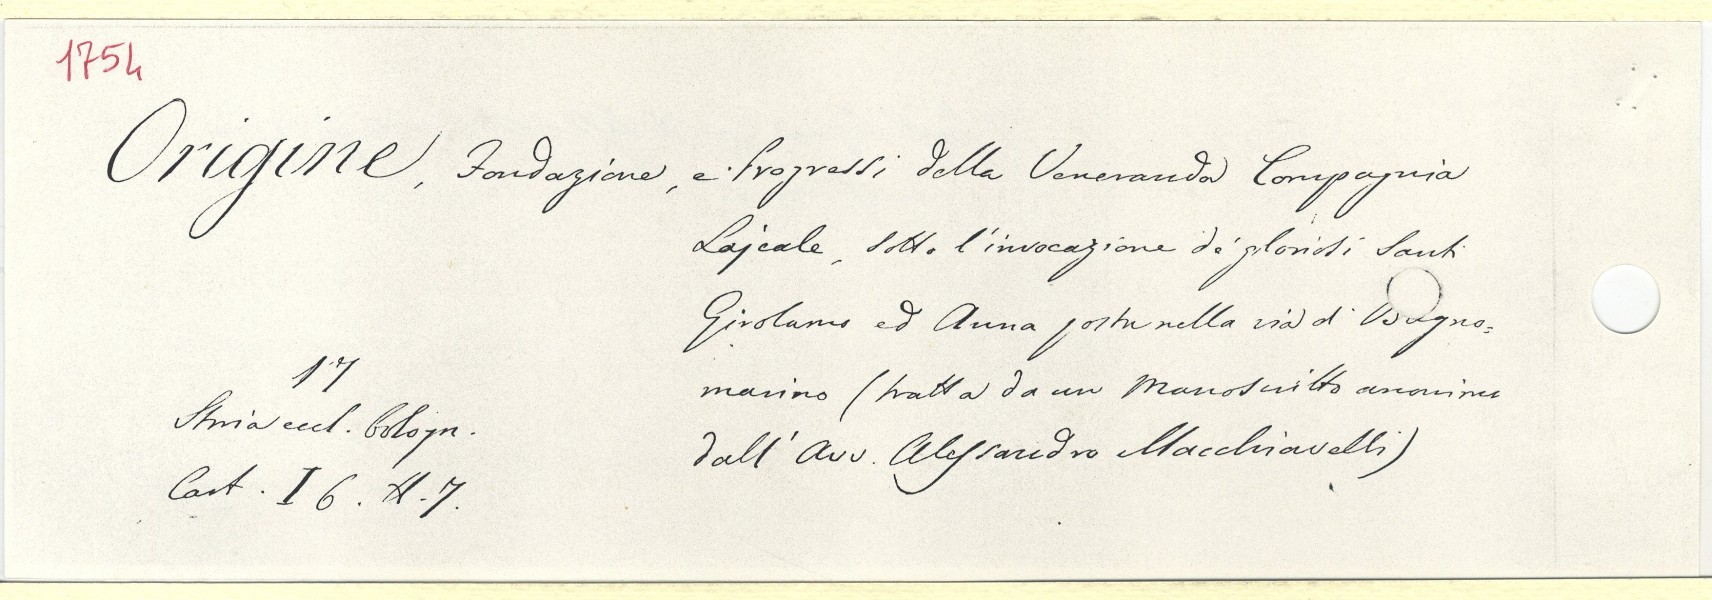 1754
Origine, Fondazione, e Progressi della Veneranda Compagnia
Lajcale, sotto l'invocazione de' gloriosi Santi
Girolamo ed Anna posta nella via di Bagno=
marino (tratta da un Manoscritto anonimo
dall' Avv. Alessandro Macchiavelli)
17
Storia eccl. bologn.
Cart. I 6. H. 7.